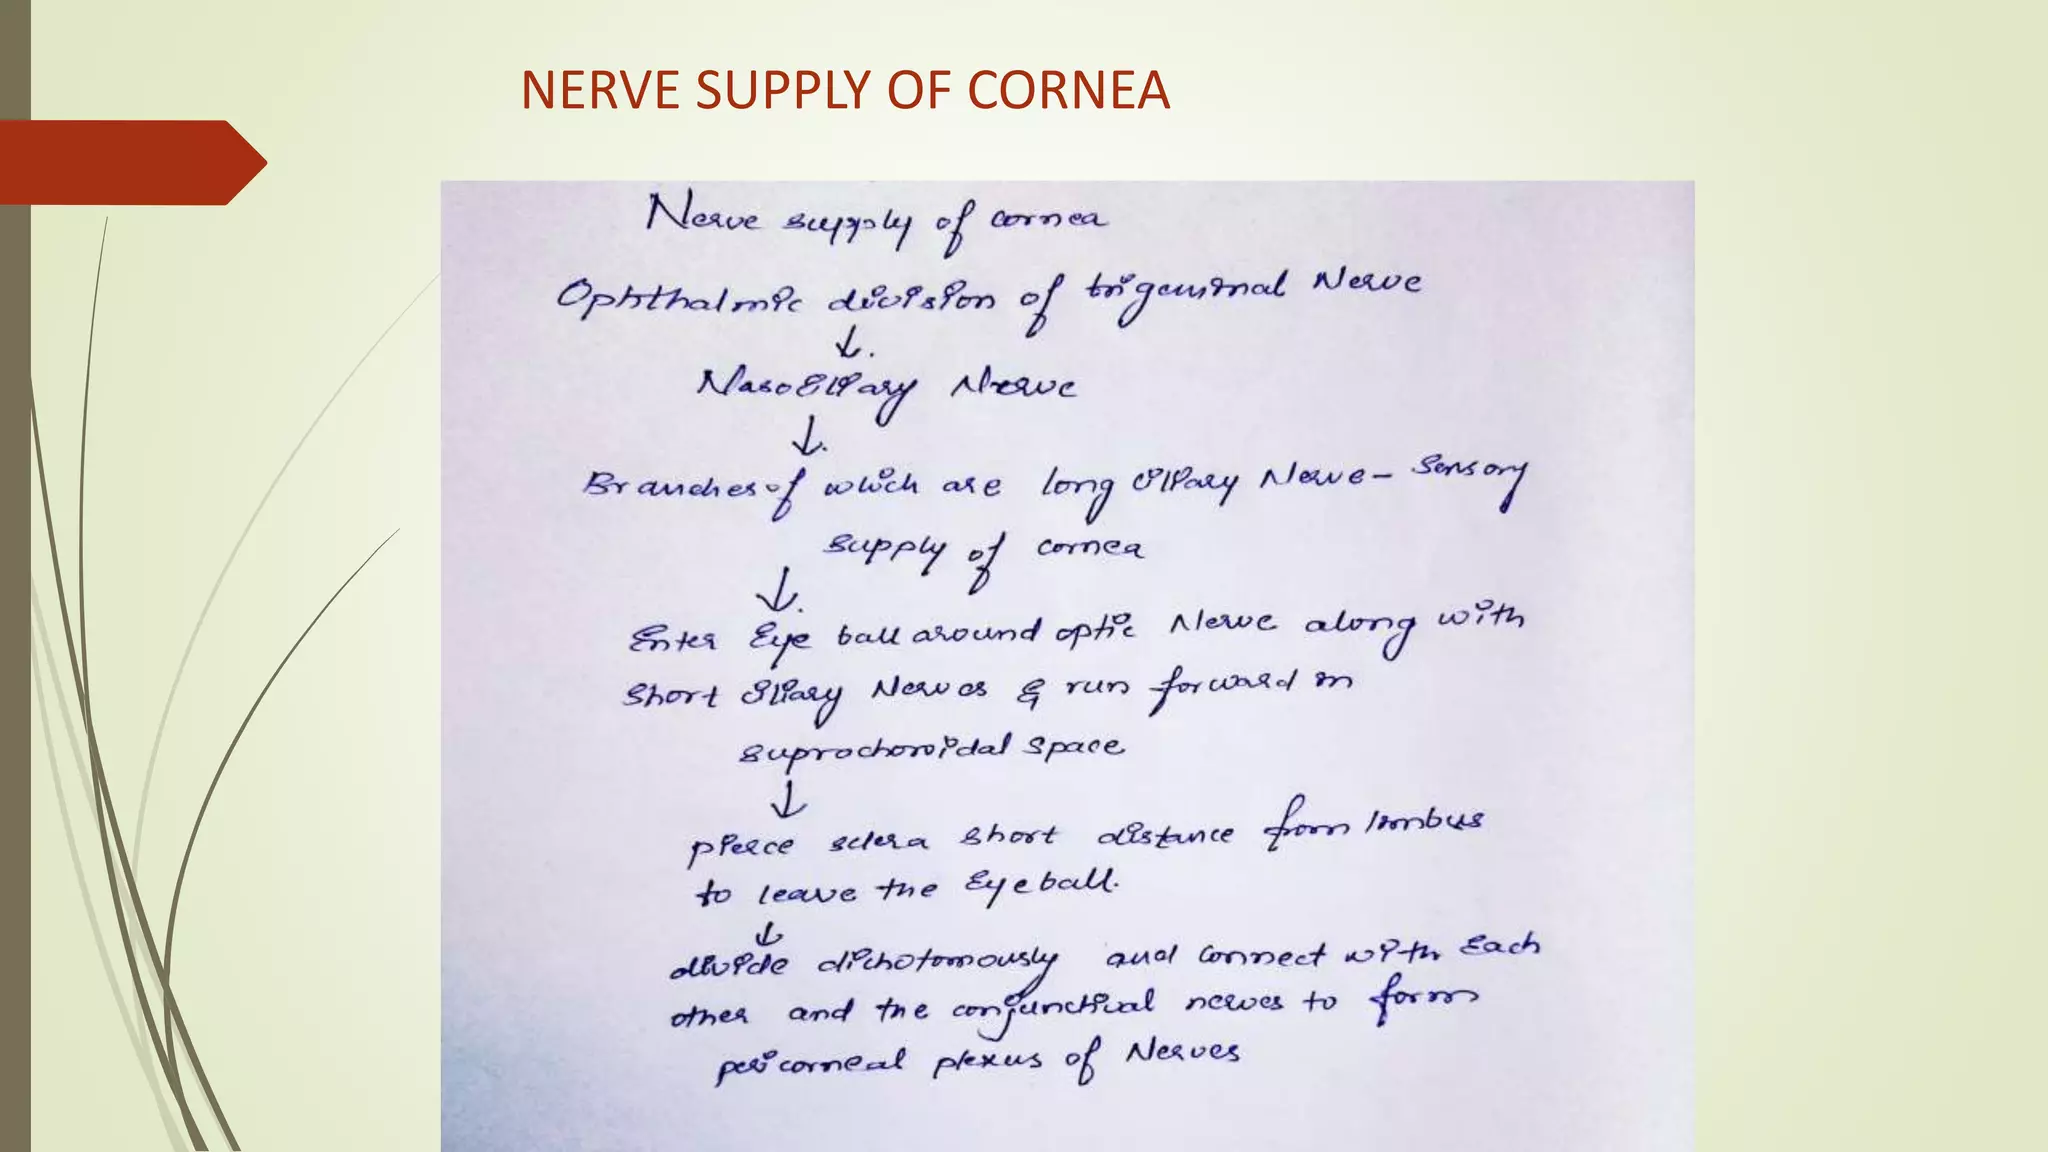 NERVE SUPPLY OF CORNEA
Nerve supply of cornea
Ophthalmic division of trigeminal Nerve
↓.
Nasociliary Nerve
↓.
Branches of which are long ciliary Nerve - Sensory
supply of cornea
↓.
Enter Eye ball around optic Nerve along with
Short ciliary Nerves & run forward in
suprachoroidal space
↓
pierce sclera short distance from limbus
to leave the Eyeball.
↓
divide dichotomously and connect with Each
other and the conjunctival nerves to form
pericorneal plexus of Nerves